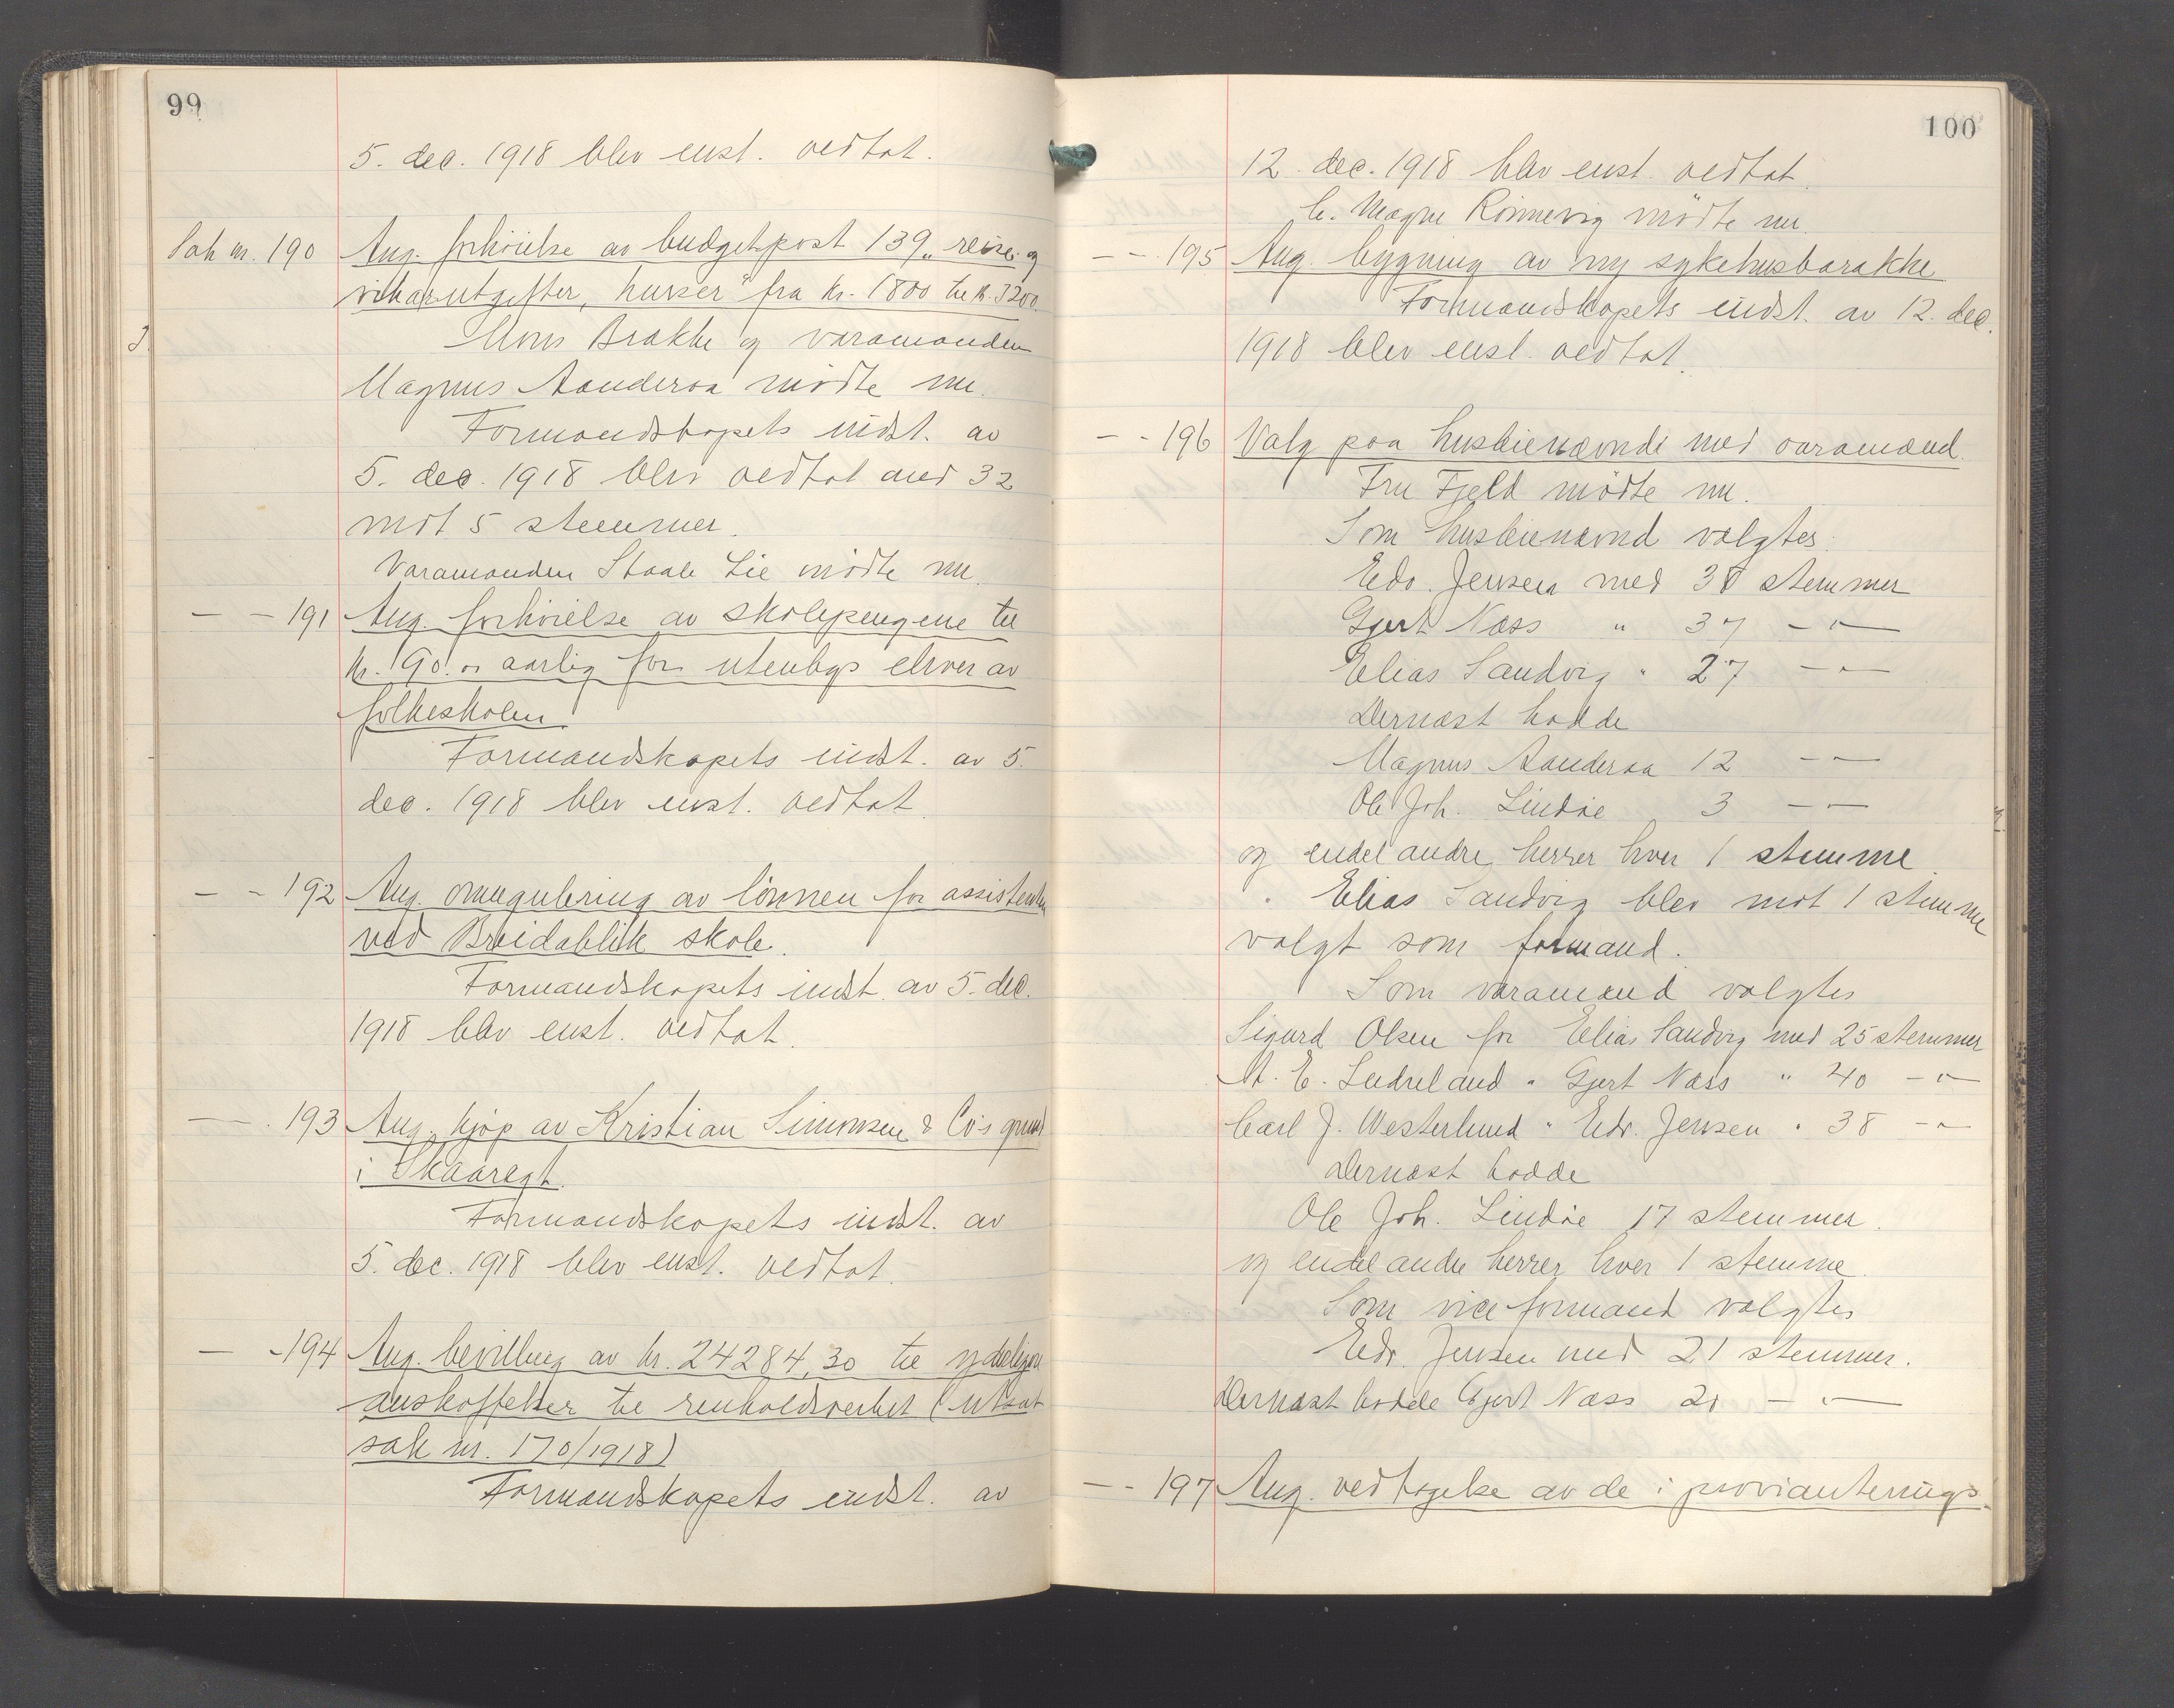 99
5. dec. 1918 blev enst. vedtat.
Sak nr. 190 Ang. forhöielse av budgetpost 139 „reise- og
vikarutgifter, kurser" fra kr. 1800 til kr. 3200.
Mons Brakke og varamanden
Magnus Aanderaa mödte nu.
Formandskapets indst. av
5. dec. 1918 blev vedtat med 32
mot 5 stemmer.
Varamanden Staale Lie mödte nu.
— — 191 Ang. forhöielse av skolepengene til
kr. 90.00 aarlig for utenbys elever av
folkeskolen
Formandskapets indst. av 5.
dec. 1918 blev enst. vedtat.
— — 192 Ang. omregulering av lönnen for assistenten
ved Breidablik skole.
Formandskapets indst. av 5. dec.
1918 blev enst. vedtat.
— — 193 Ang. kjøp av Kristian Simonsen & Co's grund
i Skaaregt.
Formandskapets indst. av
5. dec. 1918 blev enst. vedtat.
— - 194 Ang. bevilling av kr. 24284,30 til ydeligere
anskaffelser til renholdsverket (utsat
sak nr. 170/1918)
Formandskapets indst. av
100
12. dec. 1918 blev enst. vedtat.
C. Magne Rönnevig mödte nu.
— - 195 Ang. bygning av ny sykehusbarakke
Formandskapets indst. av 12. dec.
1918 blev enst. vedtat.
— - 196 Valg paa husleienævnde med varamænd.
Fru Fjeld mödte nu.
Som husleienævnd valgtes:
Edv. Jensen med 38 stemmer
Gjert Næss " 37 — " —
Elias Sandvig " 27 — " —
Dernæst hadde
Magnus Aanderaa 12 — " —
Ole Joh. Lindöe 3 — " —
og endel andre herrer hver 1 stemme.
Elias Sandvig blev mot 1 stemme
valgt som formand.
Som varamænd valgtes
Sigurd Olsen for Elias Sandvig med 25 stemmer
A. E. Ludveland " Gjert Næss " 40 — " —
Carl J. Westerlund " Edv. Jensen " 38 — " —
Dernæst hadde
Ole Joh. Lindöe 17 stemmer.
og endel andre herrer hver 1 stemme.
Som viceformand valgtes
Edv. Jensen med 21 stemmer.
Dernæst hadde Gjert Næss 20 — " —
— - 197 Ang. vedtagelse av de i provianterings-